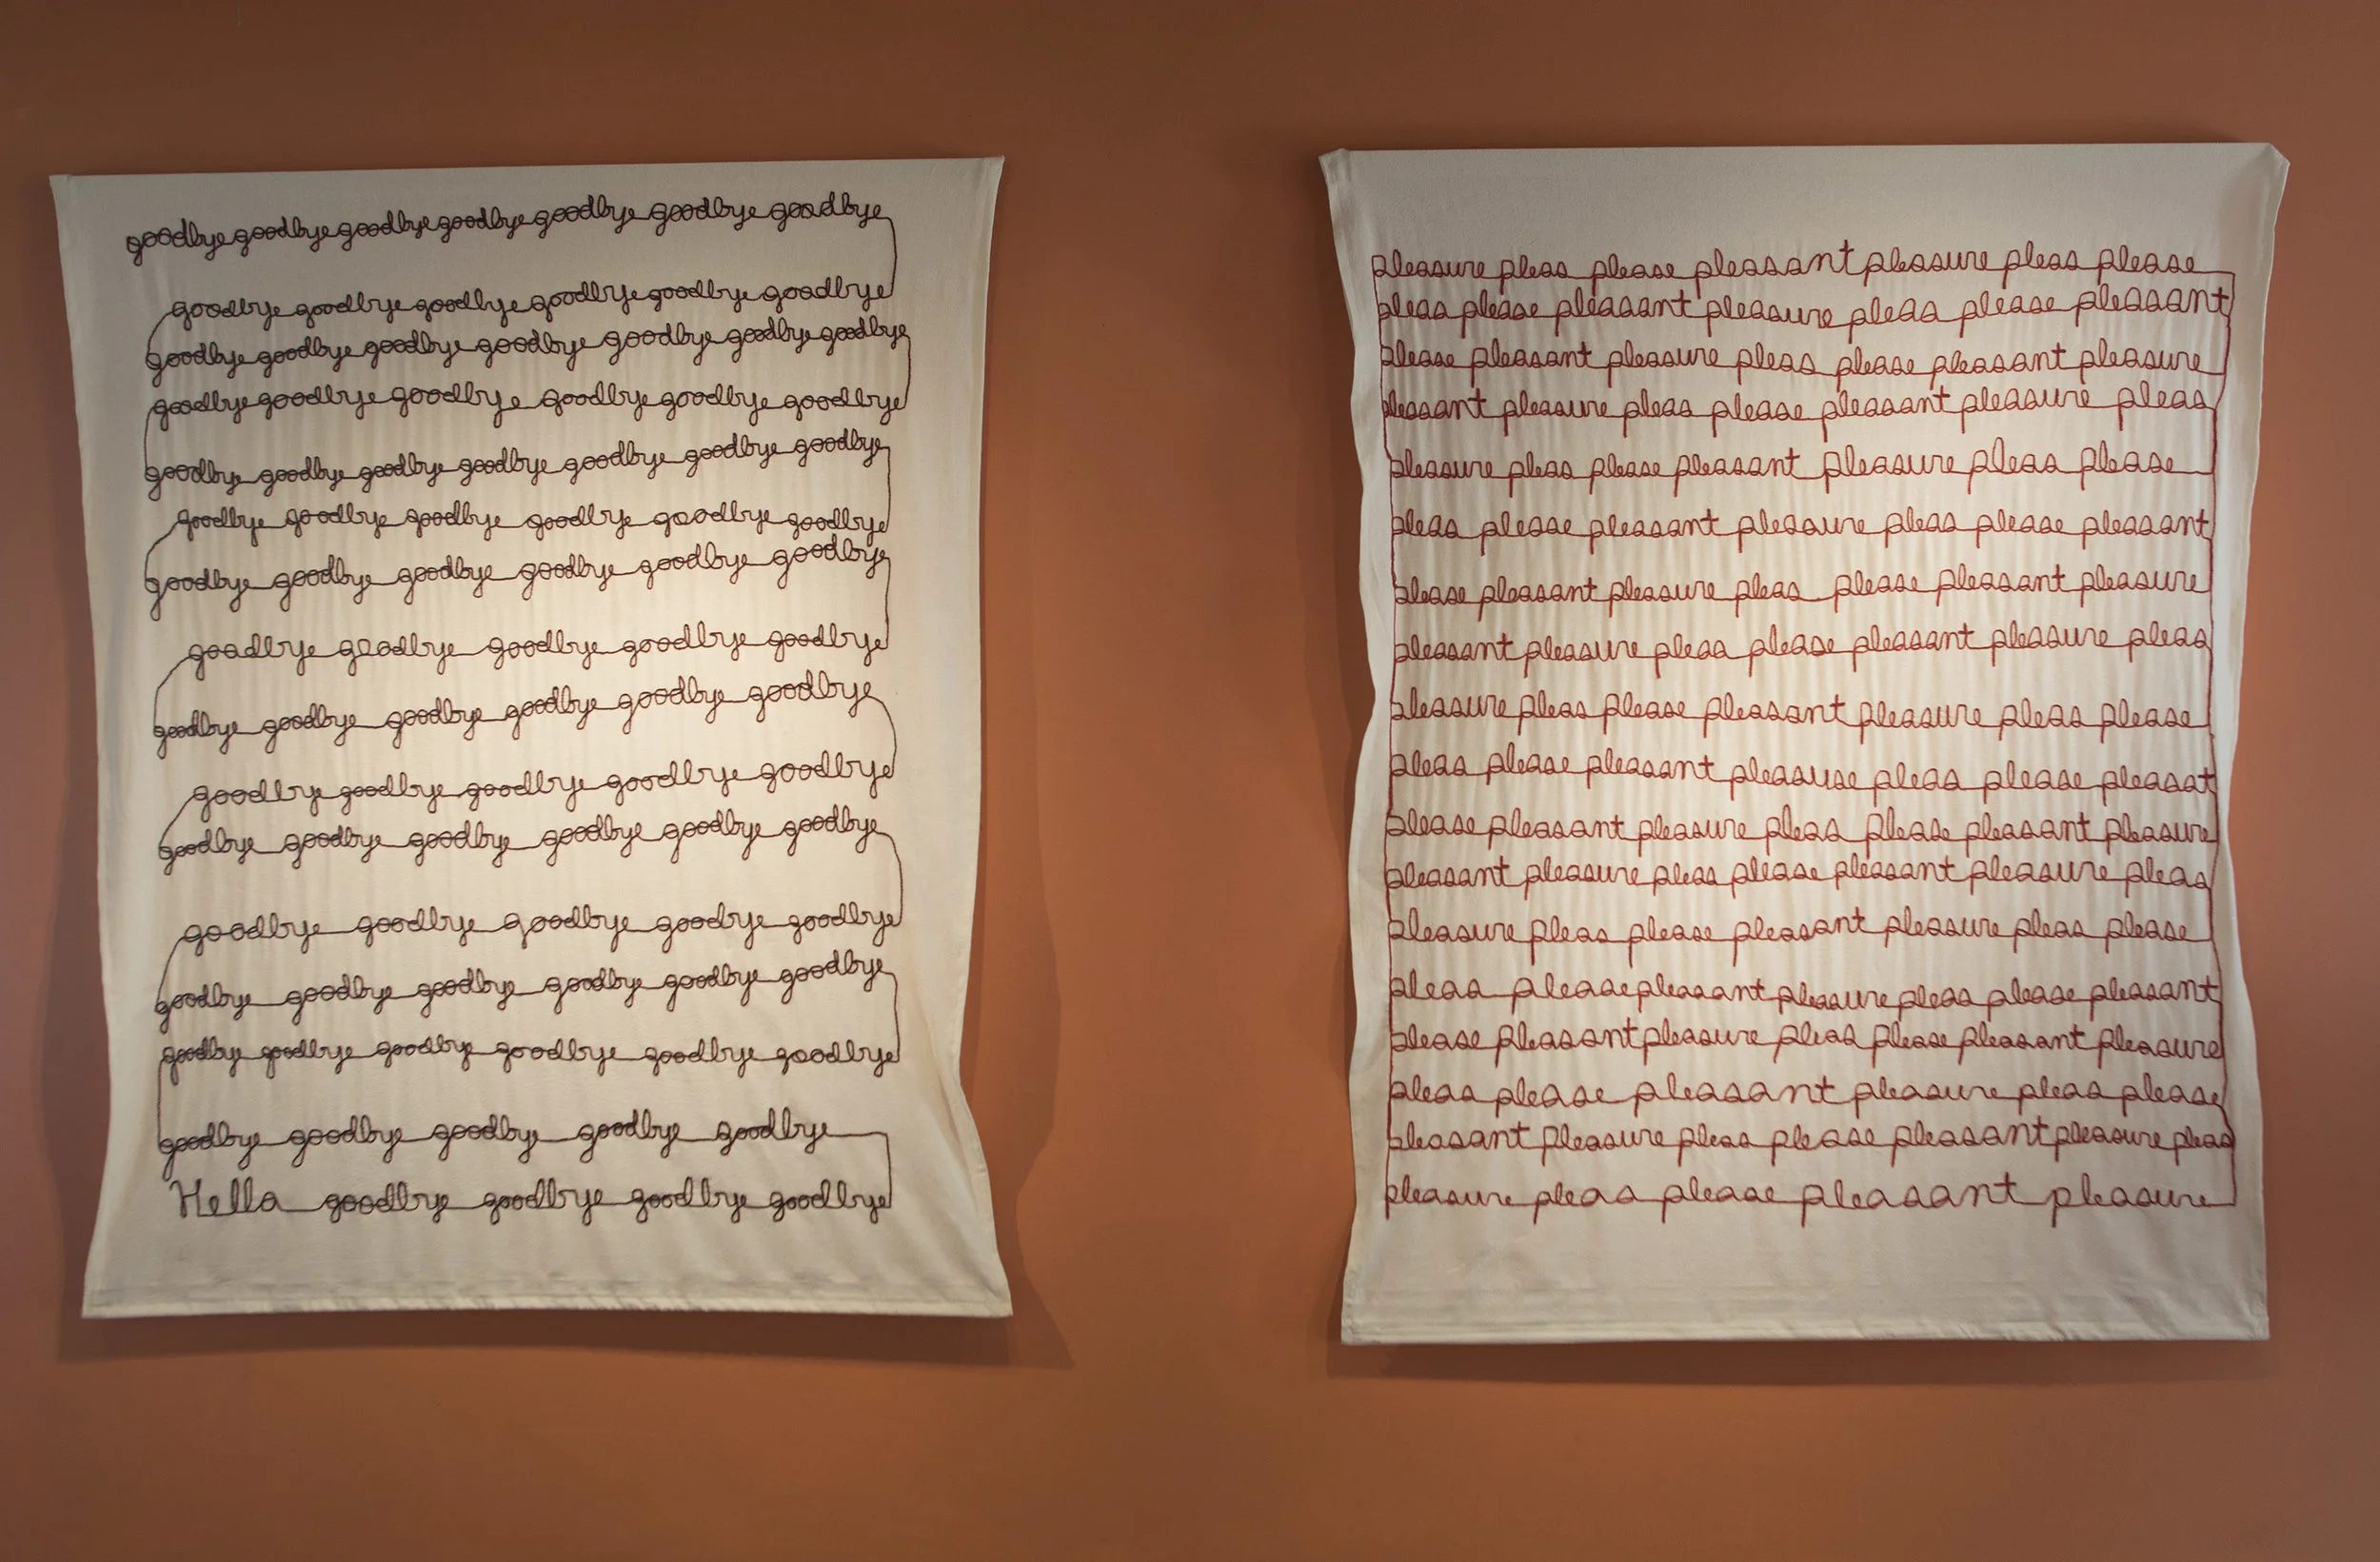 goodbye goodbye goodbye goodbye goodbye goodbye goodbye
goodbye goodbye goodbye goodbye goodbye goodbye
goodbye goodbye goodbye goodbye goodbye goodbye goodbye
goodbye goodbye goodbye goodbye goodbye goodbye
goodbye goodbye goodbye goodbye goodbye goodbye goodbye
goodbye goodbye goodbye goodbye goodbye goodbye
goodbye goodbye goodbye goodbye goodbye goodbye
goodbye goodbye goodbye goodbye goodbye
goodbye goodbye goodbye goodbye goodbye goodbye
goodbye goodbye goodbye goodbye goodbye
goodbye goodbye goodbye goodbye goodbye goodbye
goodbye goodbye goodbye goodbye goodbye
goodbye goodbye goodbye goodbye goodbye goodbye
goodbye goodbye goodbye goodbye goodbye goodbye
goodbye goodbye goodbye goodbye goodbye
Hello goodbye goodbye goodbye goodbye
pleasure pleas please pleasant pleasure pleas please
pleas please pleasant pleasure pleas please pleasant
please pleasant pleasure pleas please pleasant pleasure
pleasant pleasure pleas please pleasant pleasure pleas
pleasure pleas please pleasant pleasure pleas please
pleas please pleasant pleasure pleas please pleasant
please pleasant pleasure pleas please pleasant pleasure
pleasant pleasure pleas please pleasant pleasure pleas
pleasure pleas please pleasant pleasure pleas please
pleas please pleasant pleasure pleas please pleasat
please pleasant pleasure pleas please pleasant pleasure
pleasant pleasure pleas please pleasant pleasure pleas
pleasure pleas please pleasant pleasure pleas please
pleas please pleasant pleasure pleas please pleasant
please pleasant pleasure pleas please pleasant pleasure
pleas please pleasant pleasure pleas please
pleasant pleasure pleas please pleasant pleasure pleas
pleasure pleas please pleasant pleasure